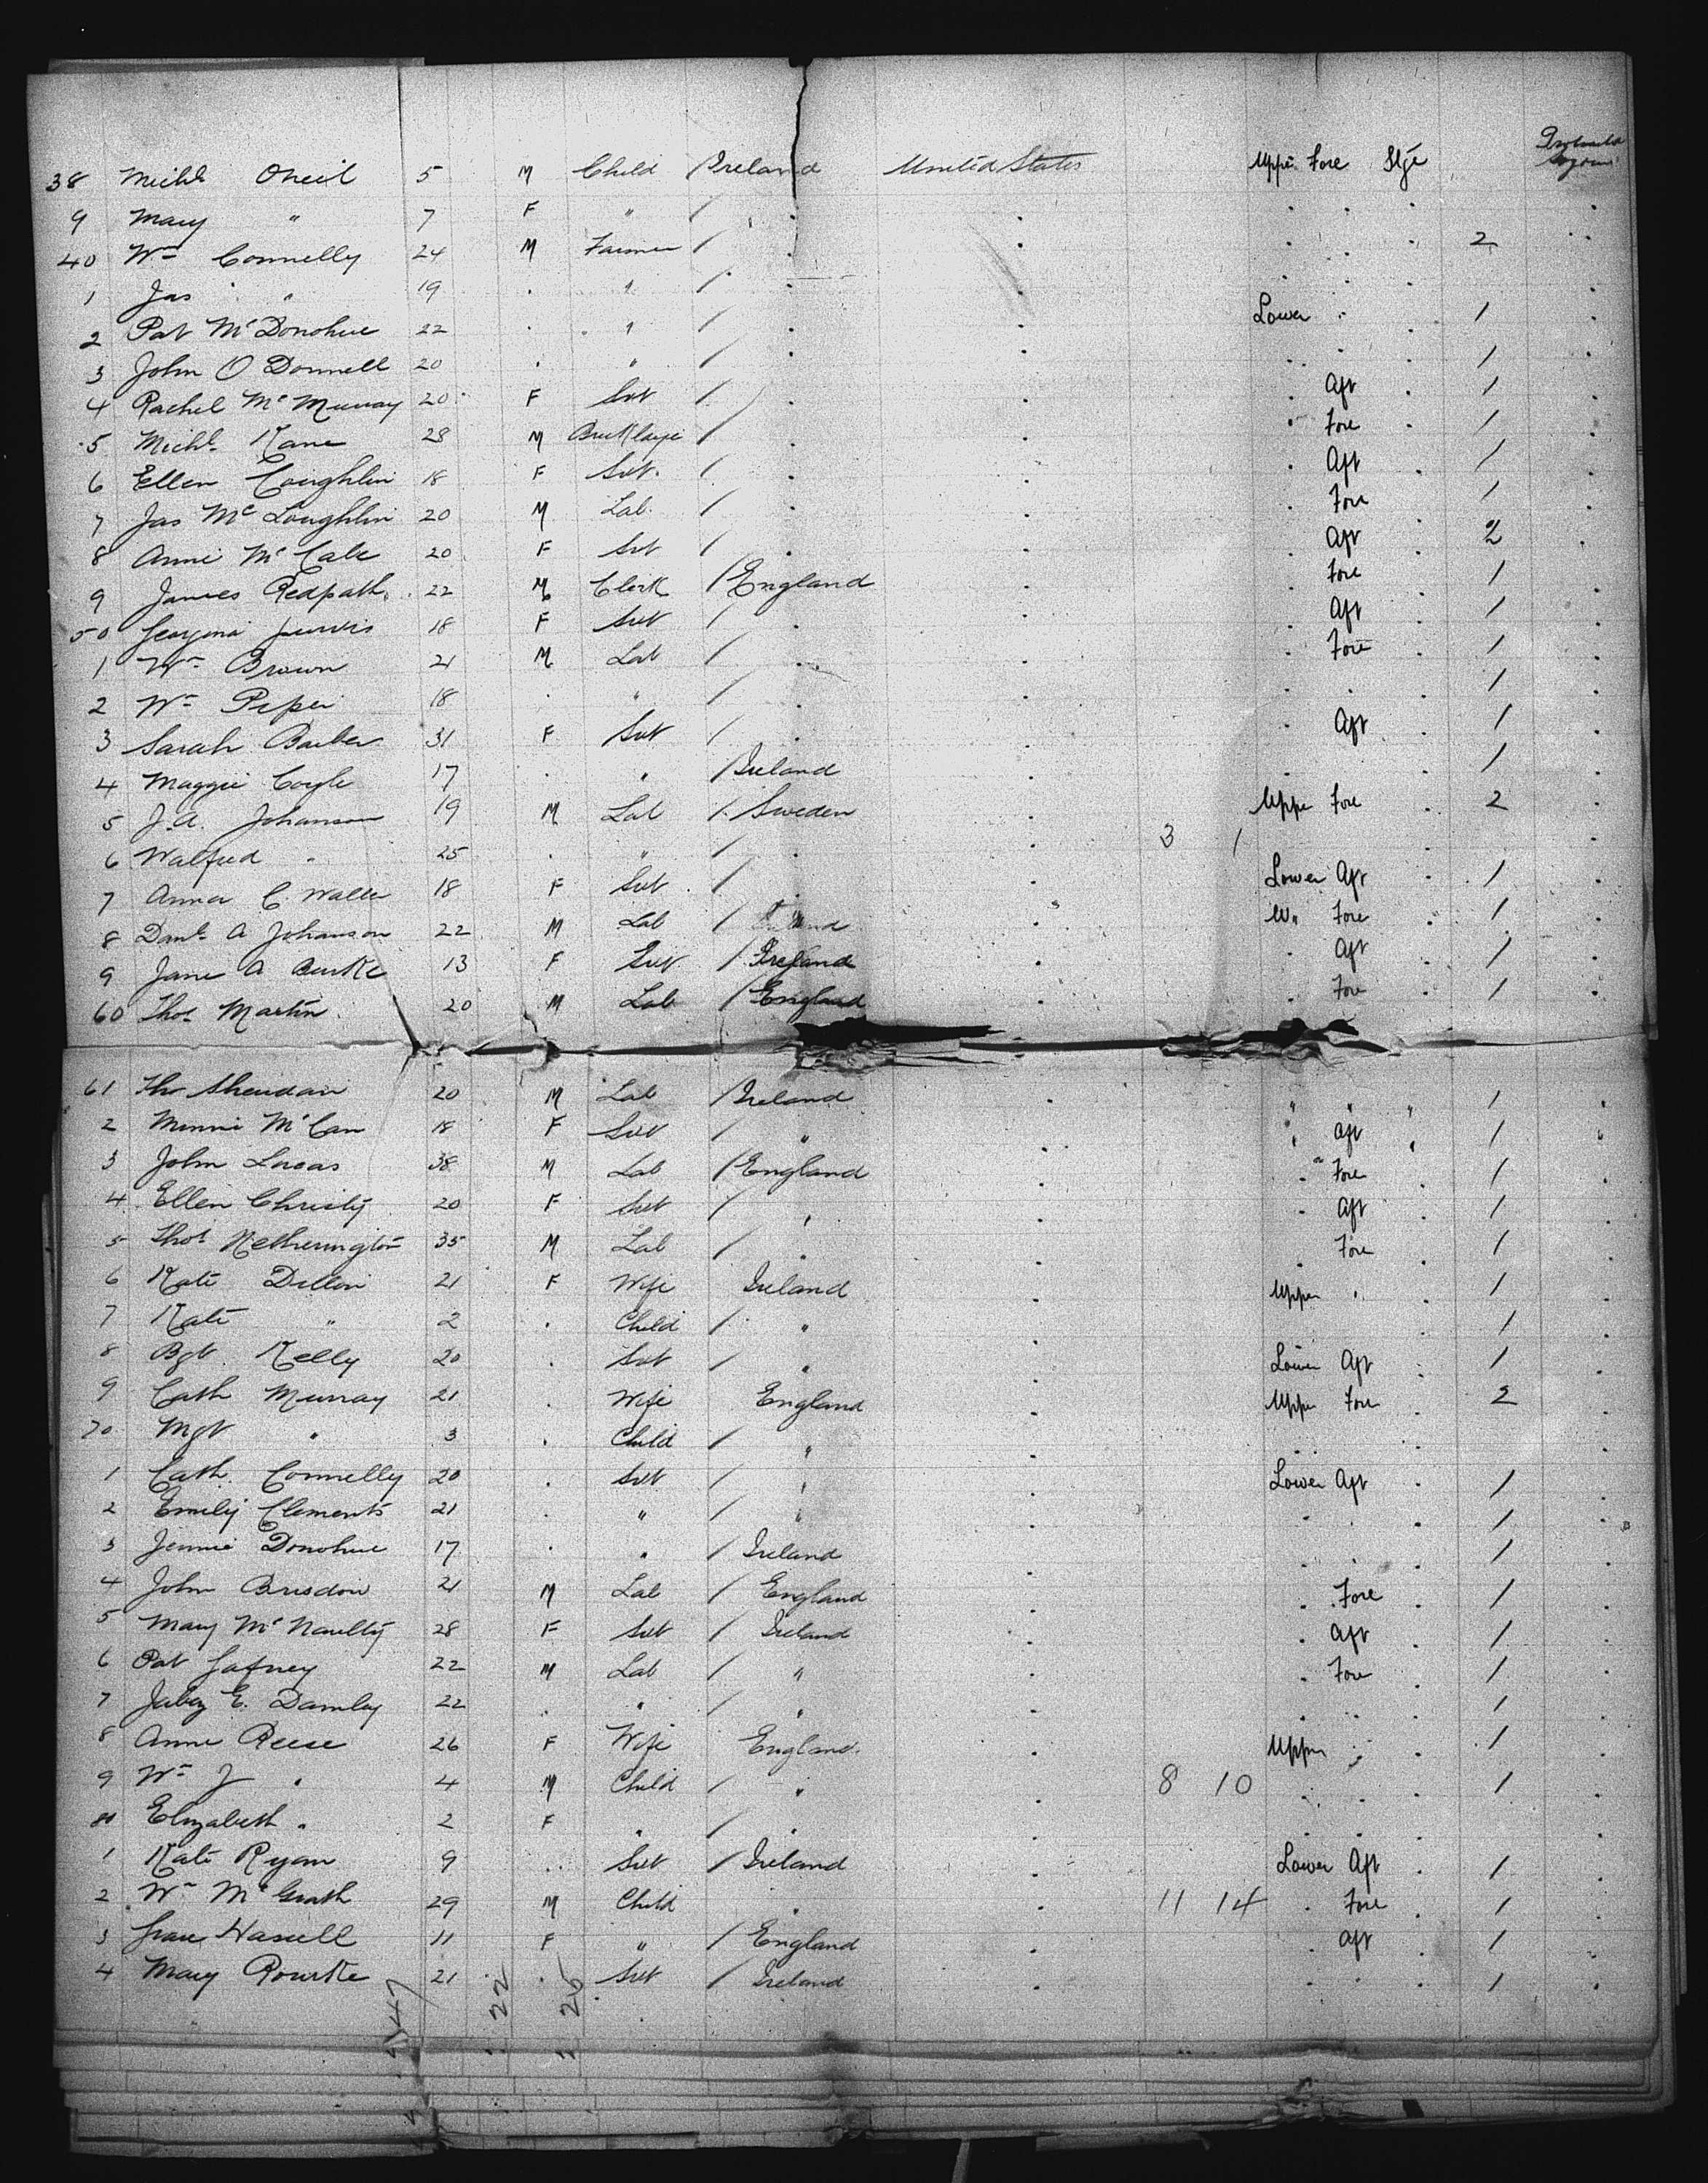 38 Michl Oneil 5 M Child Ireland United States Upper Fore Stge
9 Mary " 7 F " / . . . . .
40 Wm Connelly 24 M Farmer / . . . . . 2
1 Jas " 19 . " / . . . . .
2 Pat McDonohue 22 . " / . . Lower . . 1
3 John O Donnell 20 . " / . . . . . 1
4 Rachel McMurray 20 F Svt / . . . Aft . 1
5 Michl Kane 28 M Bricklayer / . . " Fore . 1
6 Ellen Coughlin 18 F Svt. / . . . Aft . 1
7 Jas McLoughlin 20 M Lab. / . . . Fore . 1
8 Annie McCabe 20 F Svt / . . . Aft .
9 James Redpath 22 M Clerk / England . . Fore . 1
50 Georgina Jarvis 18 F Svt / . . . Aft . 1
1 Wm Brown 21 M Lab / . . . Fore . 1
2 Wm Piper 18 . " / . . . . . 1
3 Sarah Barber 31 F Svt / . . . Aft . 1
4 Maggie Coyle 17 . " / Ireland . . . . 1
5 J.A. Johanson 19 M Lab / Sweden . Upper Fore . 2
6 Walfred " 25 . " / . . 3 1
7 Anna C. Waller 18 F Svt / . . Lower Aft . 1
8 Danl A Johanson 22 M Lab / . Fore . 1
9 Jane A Burke 13 F Svt / Ireland . . Aft . 1
60 Thos Martin 20 M Lab / England . . Fore . 1
61 Tho Sheridan 20 M Lab / Ireland . " " " 1
2 Minnie McCan 18 F Svt / " . " Aft " 1
3 John Lucas 38 M Lab / England . " Fore . 1
4 Ellen Christy 20 F Svt / " . . Aft . 1
5 Thos Hetherington 35 M Lab / . . . Fore . 1
6 Kate Dillon 21 F Wife Ireland . Upper " . 1
7 Kate " 2 . Child / " . 1
8 Bgt Kelly 20 . Svt / " . Lower Aft . 1
9 Cath Murray 21 . Wife England . Upper Fore . 2
70 Mgt " 3 . Child / " . . . .
1 Cath. Connelly 20 . Svt / " . Lower Aft . 1
2 Emily Clements 21 . " / " . . . . 1
3 Jennie Donohue 17 . " / Ireland . . . . 1
4 John Brisdow 21 M Lab / England . . Fore . 1
5 Mary McNaulty 28 F Svt / Ireland . . Aft . 1
6 Pat Gafney 22 M Lab / " . . Fore . 1
7 Jabez E. Damley 22 . " / " . . . . 1
8 Anne Reese 26 F Wife England . Upper . . 1
9 Wm J " 4 M Child / " . 8 10 . . . 1
80 Elizabeth " 2 F " / . . . . .
1 Kate Ryan 9 .. Svt / Ireland . Lower Aft . 1
2 Wm McGrath 29 M Child . . 11 14 . Fore . 1
3 11 F " / England . . Aft . 1
4 Mary Rourke 21 . Svt / Ireland . . . . 1
47 22 25